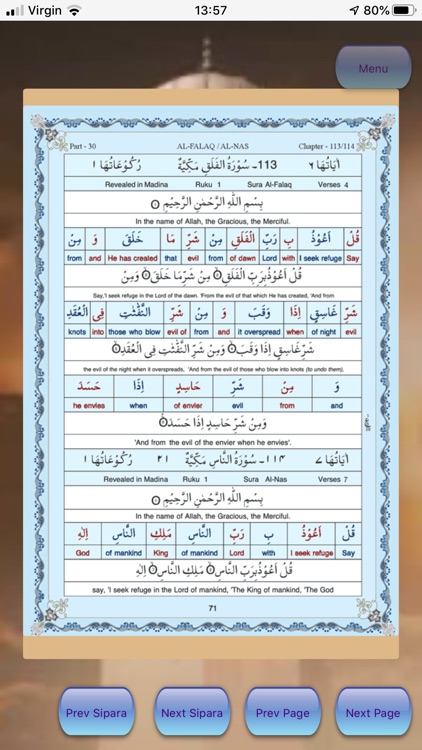 Virgin 13:57 80%
Menu
Part - 30 AL-FALAQ / AL-NAS Chapter - 113/114
اٰيَاتُهَا ٦ 113- سُوْرَةُ الْفَلَقِ مَكِّيَّةٌ رُكُوْعَاتُهَا ١
Revealed in Madina Ruku 1 Sura Al-Falaq Verses 4
بِسْمِ اللّٰهِ الرَّحْمٰنِ الرَّحِيْمِ
In the name of Allah, the Gracious, the Merciful.
قُلْ اَعُوْذُ بِ رَبِّ الْفَلَقِ مِنْ شَرِّ مَا خَلَقَ وَ مِنْ
from and He has created that evil from of dawn Lord with I seek refuge Say
قُلْ اَعُوْذُ بِرَبِّ الْفَلَقِ مِنْ شَرِّ مَا خَلَقَ وَمِنْ
Say,'I seek refuge in the Lord of the dawn. 'From the evil of that which He has created, 'And from
شَرِّ غَاسِقٍ اِذَا وَقَبَ وَ مِنْ شَرِّ النَّفّٰثٰتِ فِى الْعُقَدِ
knots into those who blow evil of from and it overspread when of night evil
شَرِّ غَاسِقٍ اِذَا وَقَبَ وَمِنْ شَرِّ النَّفّٰثٰتِ فِى الْعُقَدِ
the evil of the night when it overspreads, 'And from the evil of those who blow into knots (to undo them),
وَ مِنْ شَرِّ حَاسِدٍ اِذَا حَسَدَ
he envies when of envier evil from and
وَمِنْ شَرِّ حَاسِدٍ اِذَا حَسَدَ
'And from the evil of the envier when he envies'.
اٰيَاتُهَا ٧ ١١٤- سُوْرَةُ النَّاسِ مَكِّيَّةٌ ٢١ رُكُوْعَاتُهَا ١
Revealed in Madina Ruku 1 Sura Al-Nas Verses 7
بِسْمِ اللّٰهِ الرَّحْمٰنِ الرَّحِيْمِ
In the name of Allah, the Gracious, the Merciful.
قُلْ اَعُوْذُ بِ رَبِّ النَّاسِ مَلِكِ النَّاسِ اِلٰهِ
God of mankind King of mankind Lord with I seek refuge Say
قُلْ اَعُوْذُ بِرَبِّ النَّاسِ مَلِكِ النَّاسِ اِلٰهِ
say, 'I seek refuge in the Lord of mankind, 'The King of mankind, 'The God
71
Prev Sipara Next Sipara Prev Page Next Page